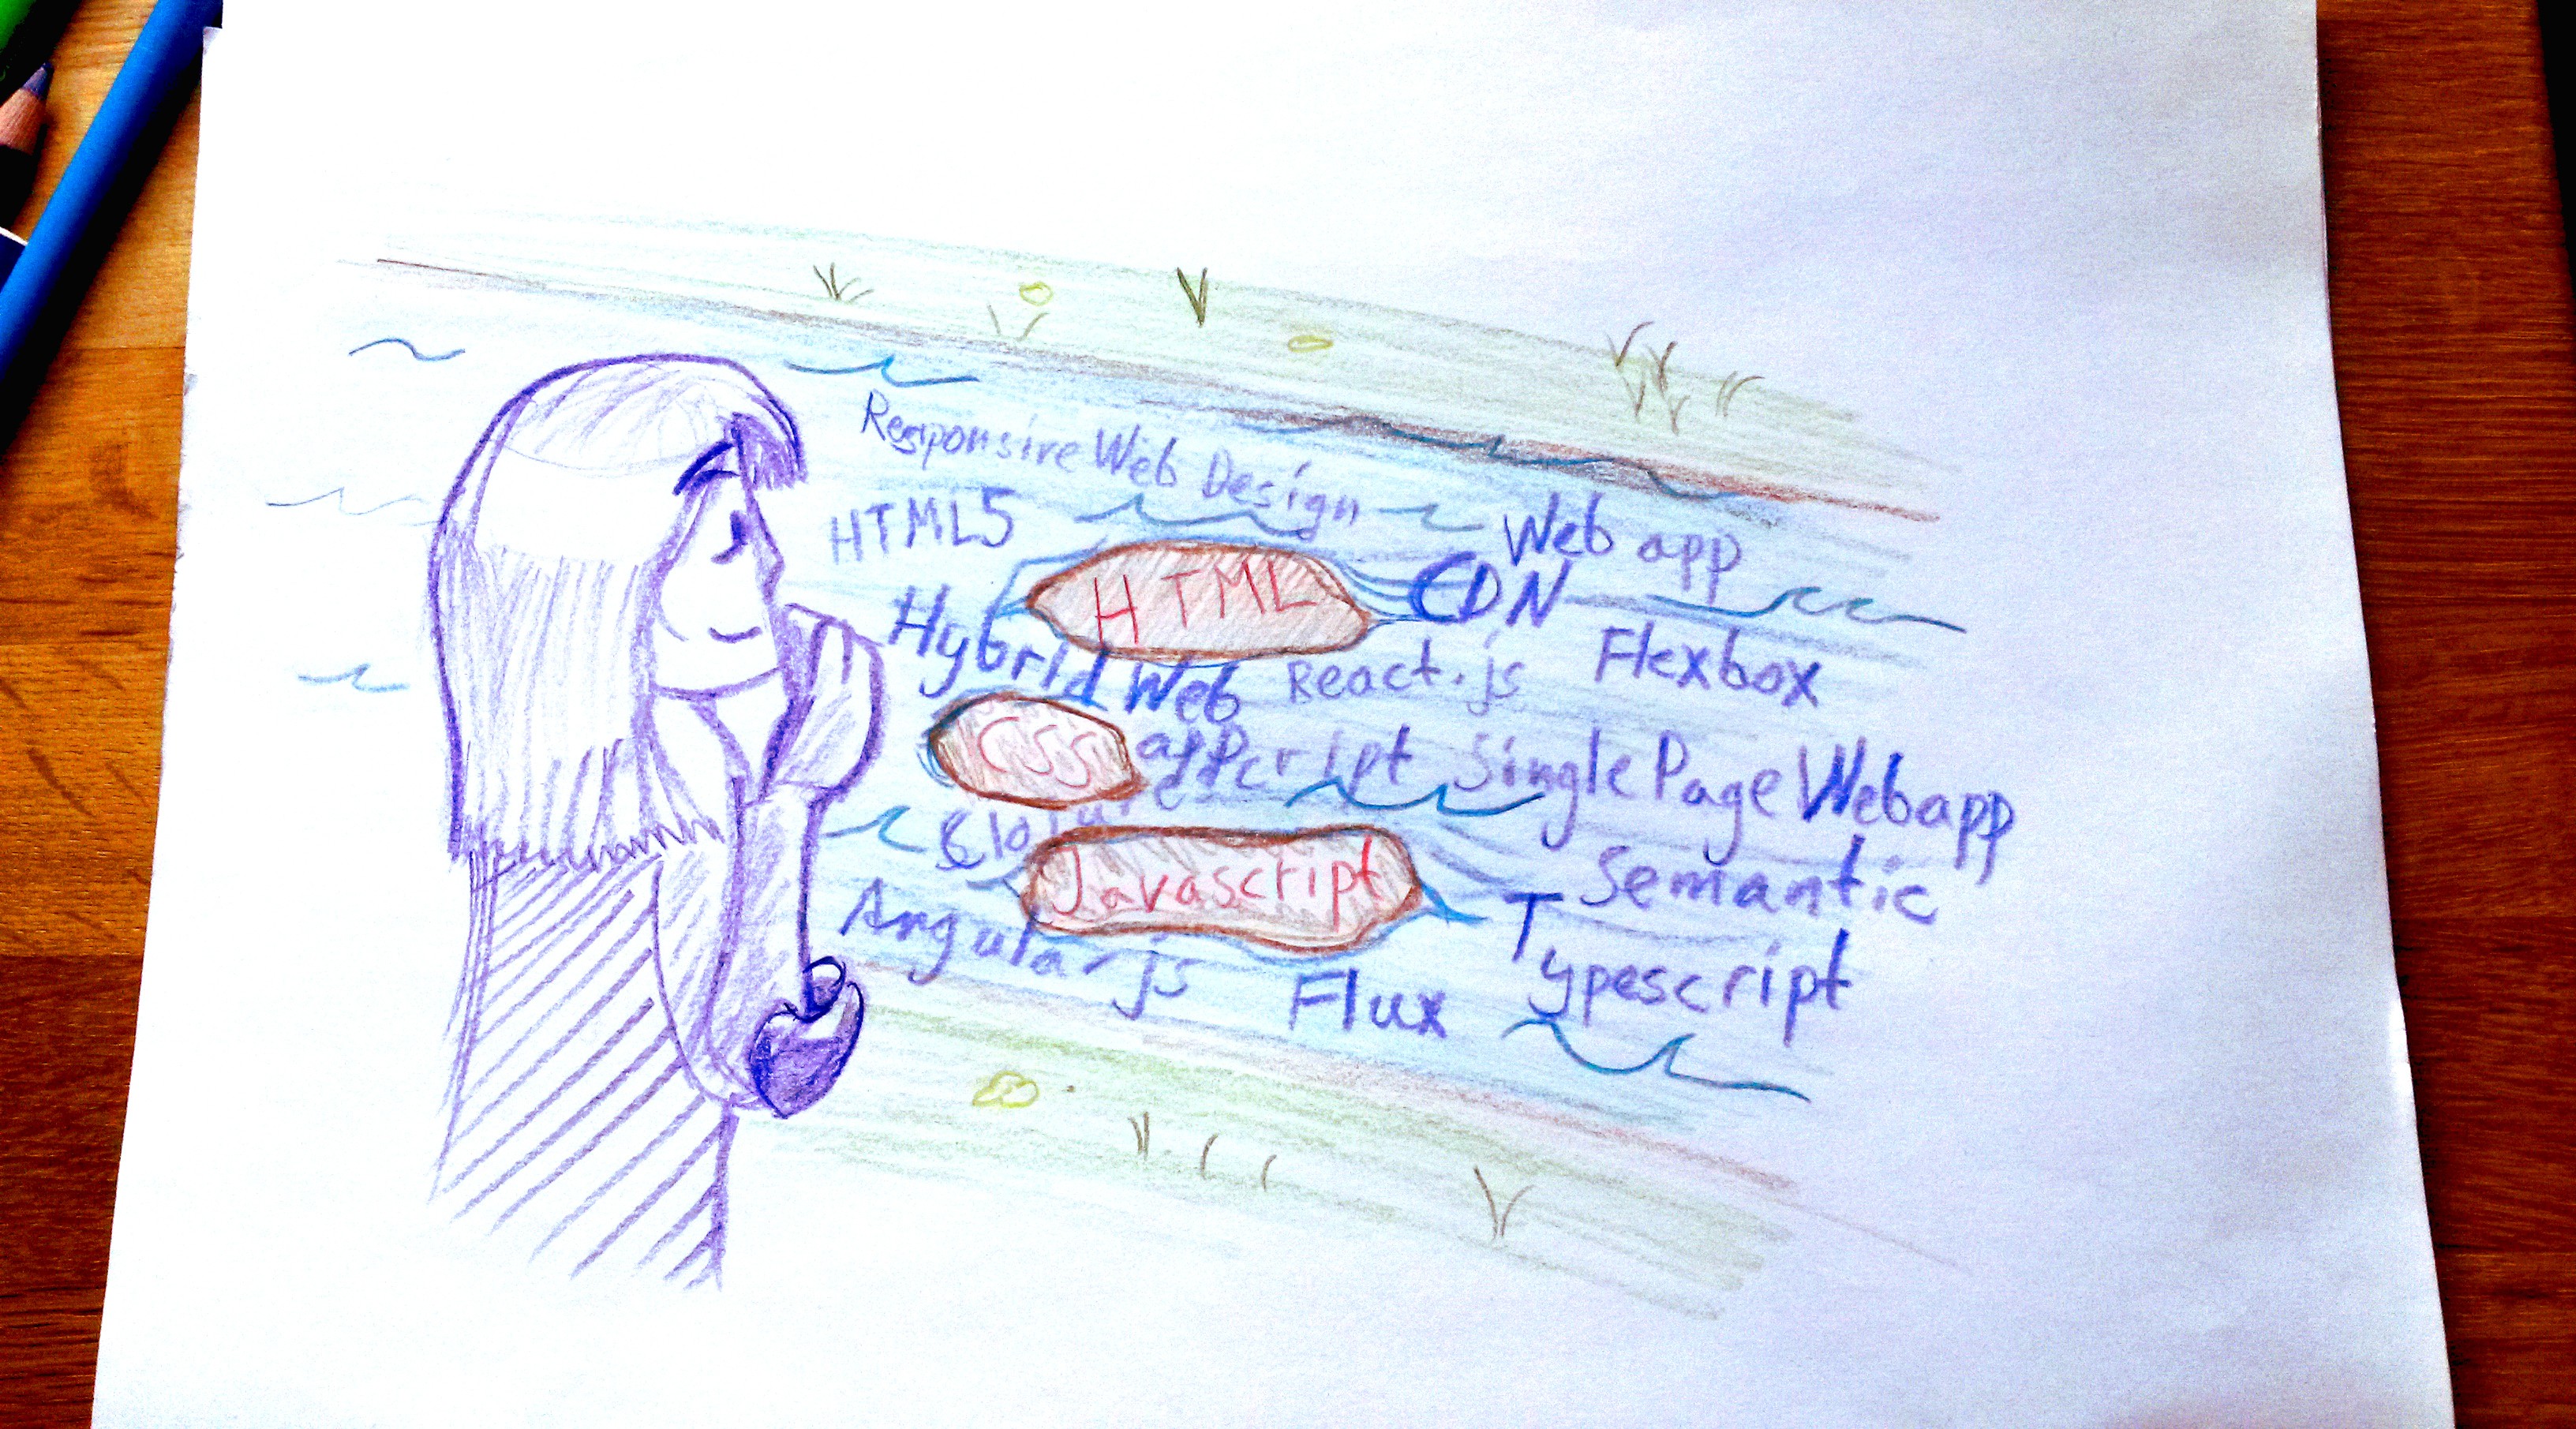 Responsive Web Design
HTML5
Web app
HTML
CDN
Hybrid Web
app
React.js
Flexbox
CSS
Single Page Webapp
Javascript
Semantic
Angular js
Typescript
Flux